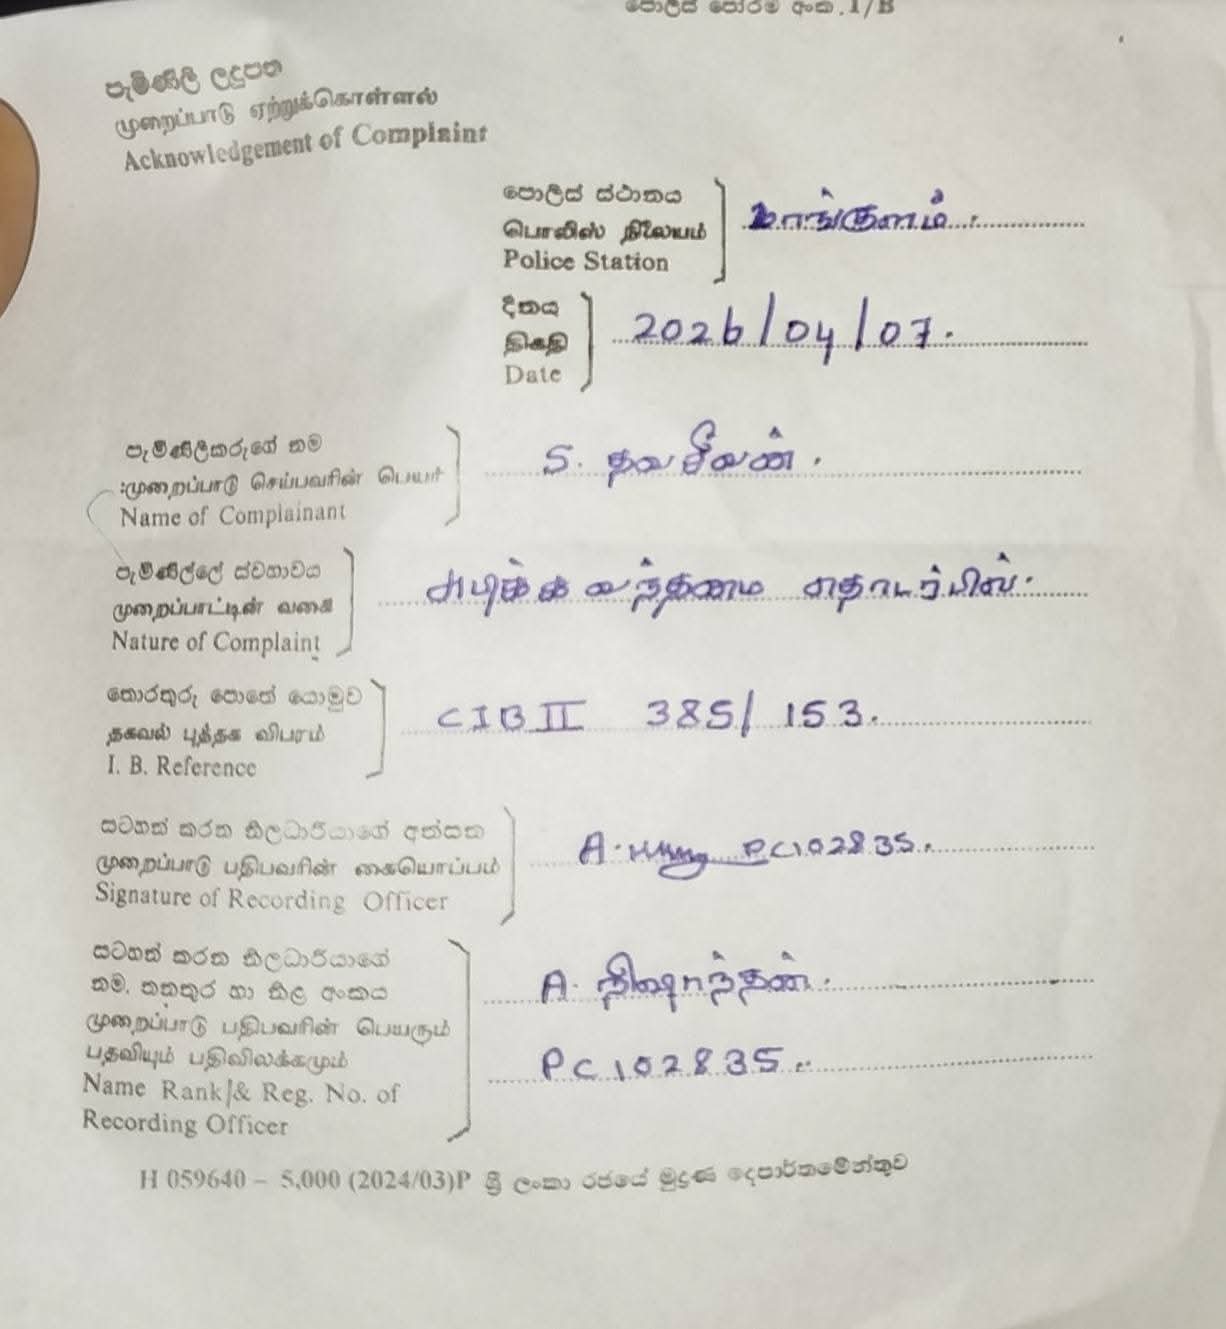 පොලිස් පෝරම අංක. 1/B
පැමිණිලි ලදුපත
முறைப்பாடு ஏற்றுக்கொள்ளல்
Acknowledgement of Complaint
පොලිස් ස්ථානය
பொலிஸ் நிலையம்
Police Station
மாங்குளம்.
දිනය
திகதி
Date
2026/04/07.
පැමිණිලිකරුගේ නම
முறைப்பாடு செய்பவரின் பெயர்
Name of Complainant
S. தவசீலன்.
පැමිණිල්ලේ ස්වභාවය
முறைப்பாட்டின் வகை
Nature of Complaint
அடிக்க வந்தமை தொடர்பில்.
තොරතුරු පොතේ යොමුව
தகவல் புத்தக விபரம்
I. B. Reference
CIB II 385/153.
සටහන් කරන නිලධාරියාගේ අත්සන
முறைப்பாடு பதிபவரின் கையொப்பம்
Signature of Recording Officer
A. PC 102835.
සටහන් කරන නිලධාරියාගේ
නම, තනතුර හා නිල අංකය
முறைப்பாடு பதிபவரின் பெயரும்
பதவியும் பதிவிலக்கமும்
Name Rank & Reg. No. of
Recording Officer
A. நிஷாந்தன்.
PC 102835.
H 059640 – 5,000 (2024/03)P ශ්‍රී ලංකා රජයේ මුද්‍රණ දෙපාර්තමේන්තුව